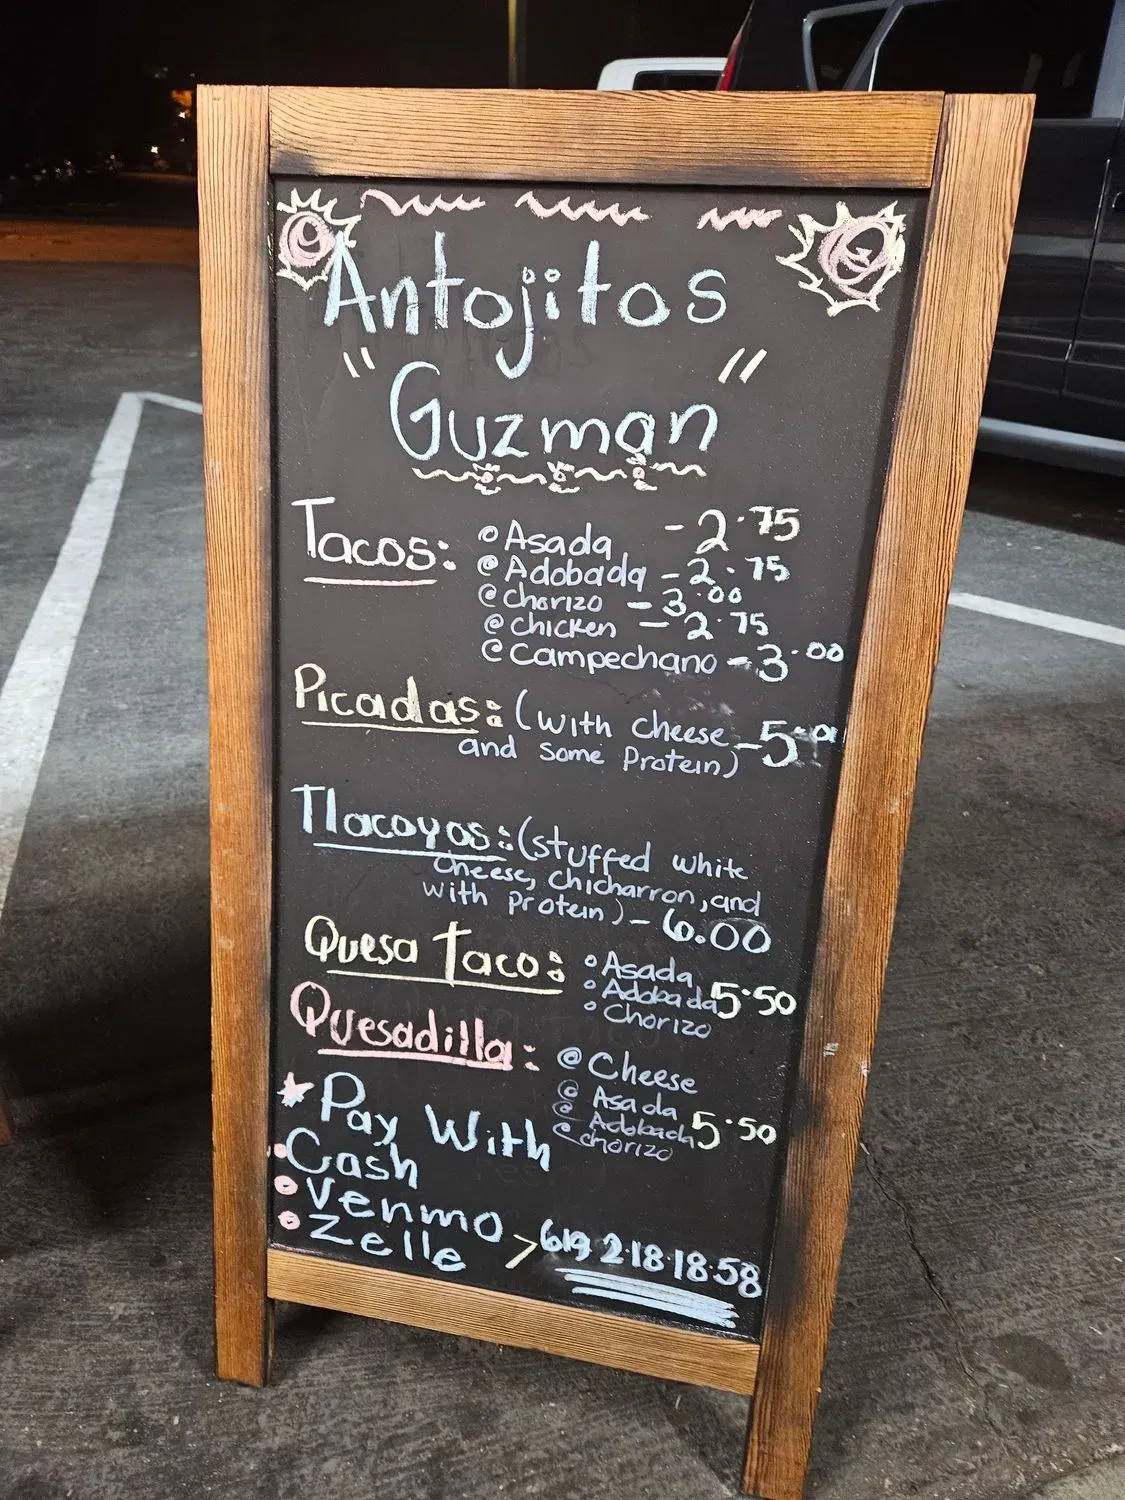 Antojitos
"Guzman"
Tacos:
@ Asada - 2.75
@ Adobada - 2.75
@ chorizo - 3.00
@ chicken - 2.75
@ campechano - 3.00
Picadas: (with cheese - 5.00
and some Protein)
Tlacoyos: (stuffed white
cheese, chicharron, and
with protein) - 6.00
Quesa Taco:
° Asada
° Adobada 5.50
° Chorizo
Quesadilla:
@ Cheese
@ Asada
@ Adobada 5.50
@ chorizo
* Pay With
• Cash
• Venmo
• Zelle > 619 2.18.18.58